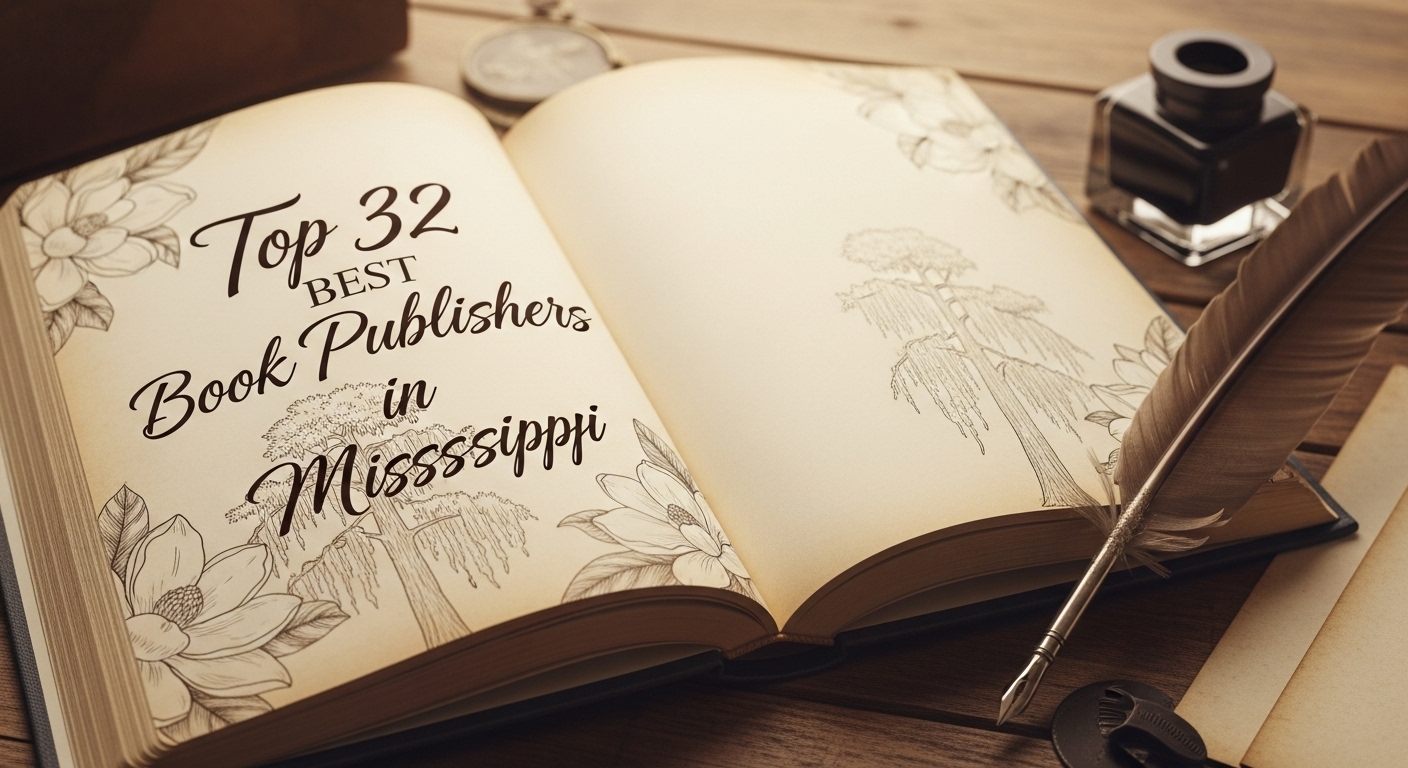 Top 32
BEST
Book Publishers
in
Missssippji